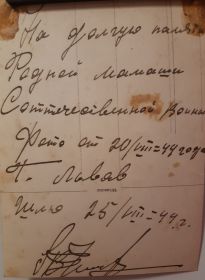 На долгую память
Родной мамаши
С отечественной войны
Фото от 20/VIII-44 года
г. Львов
Шлю 25/VIII-44 г.